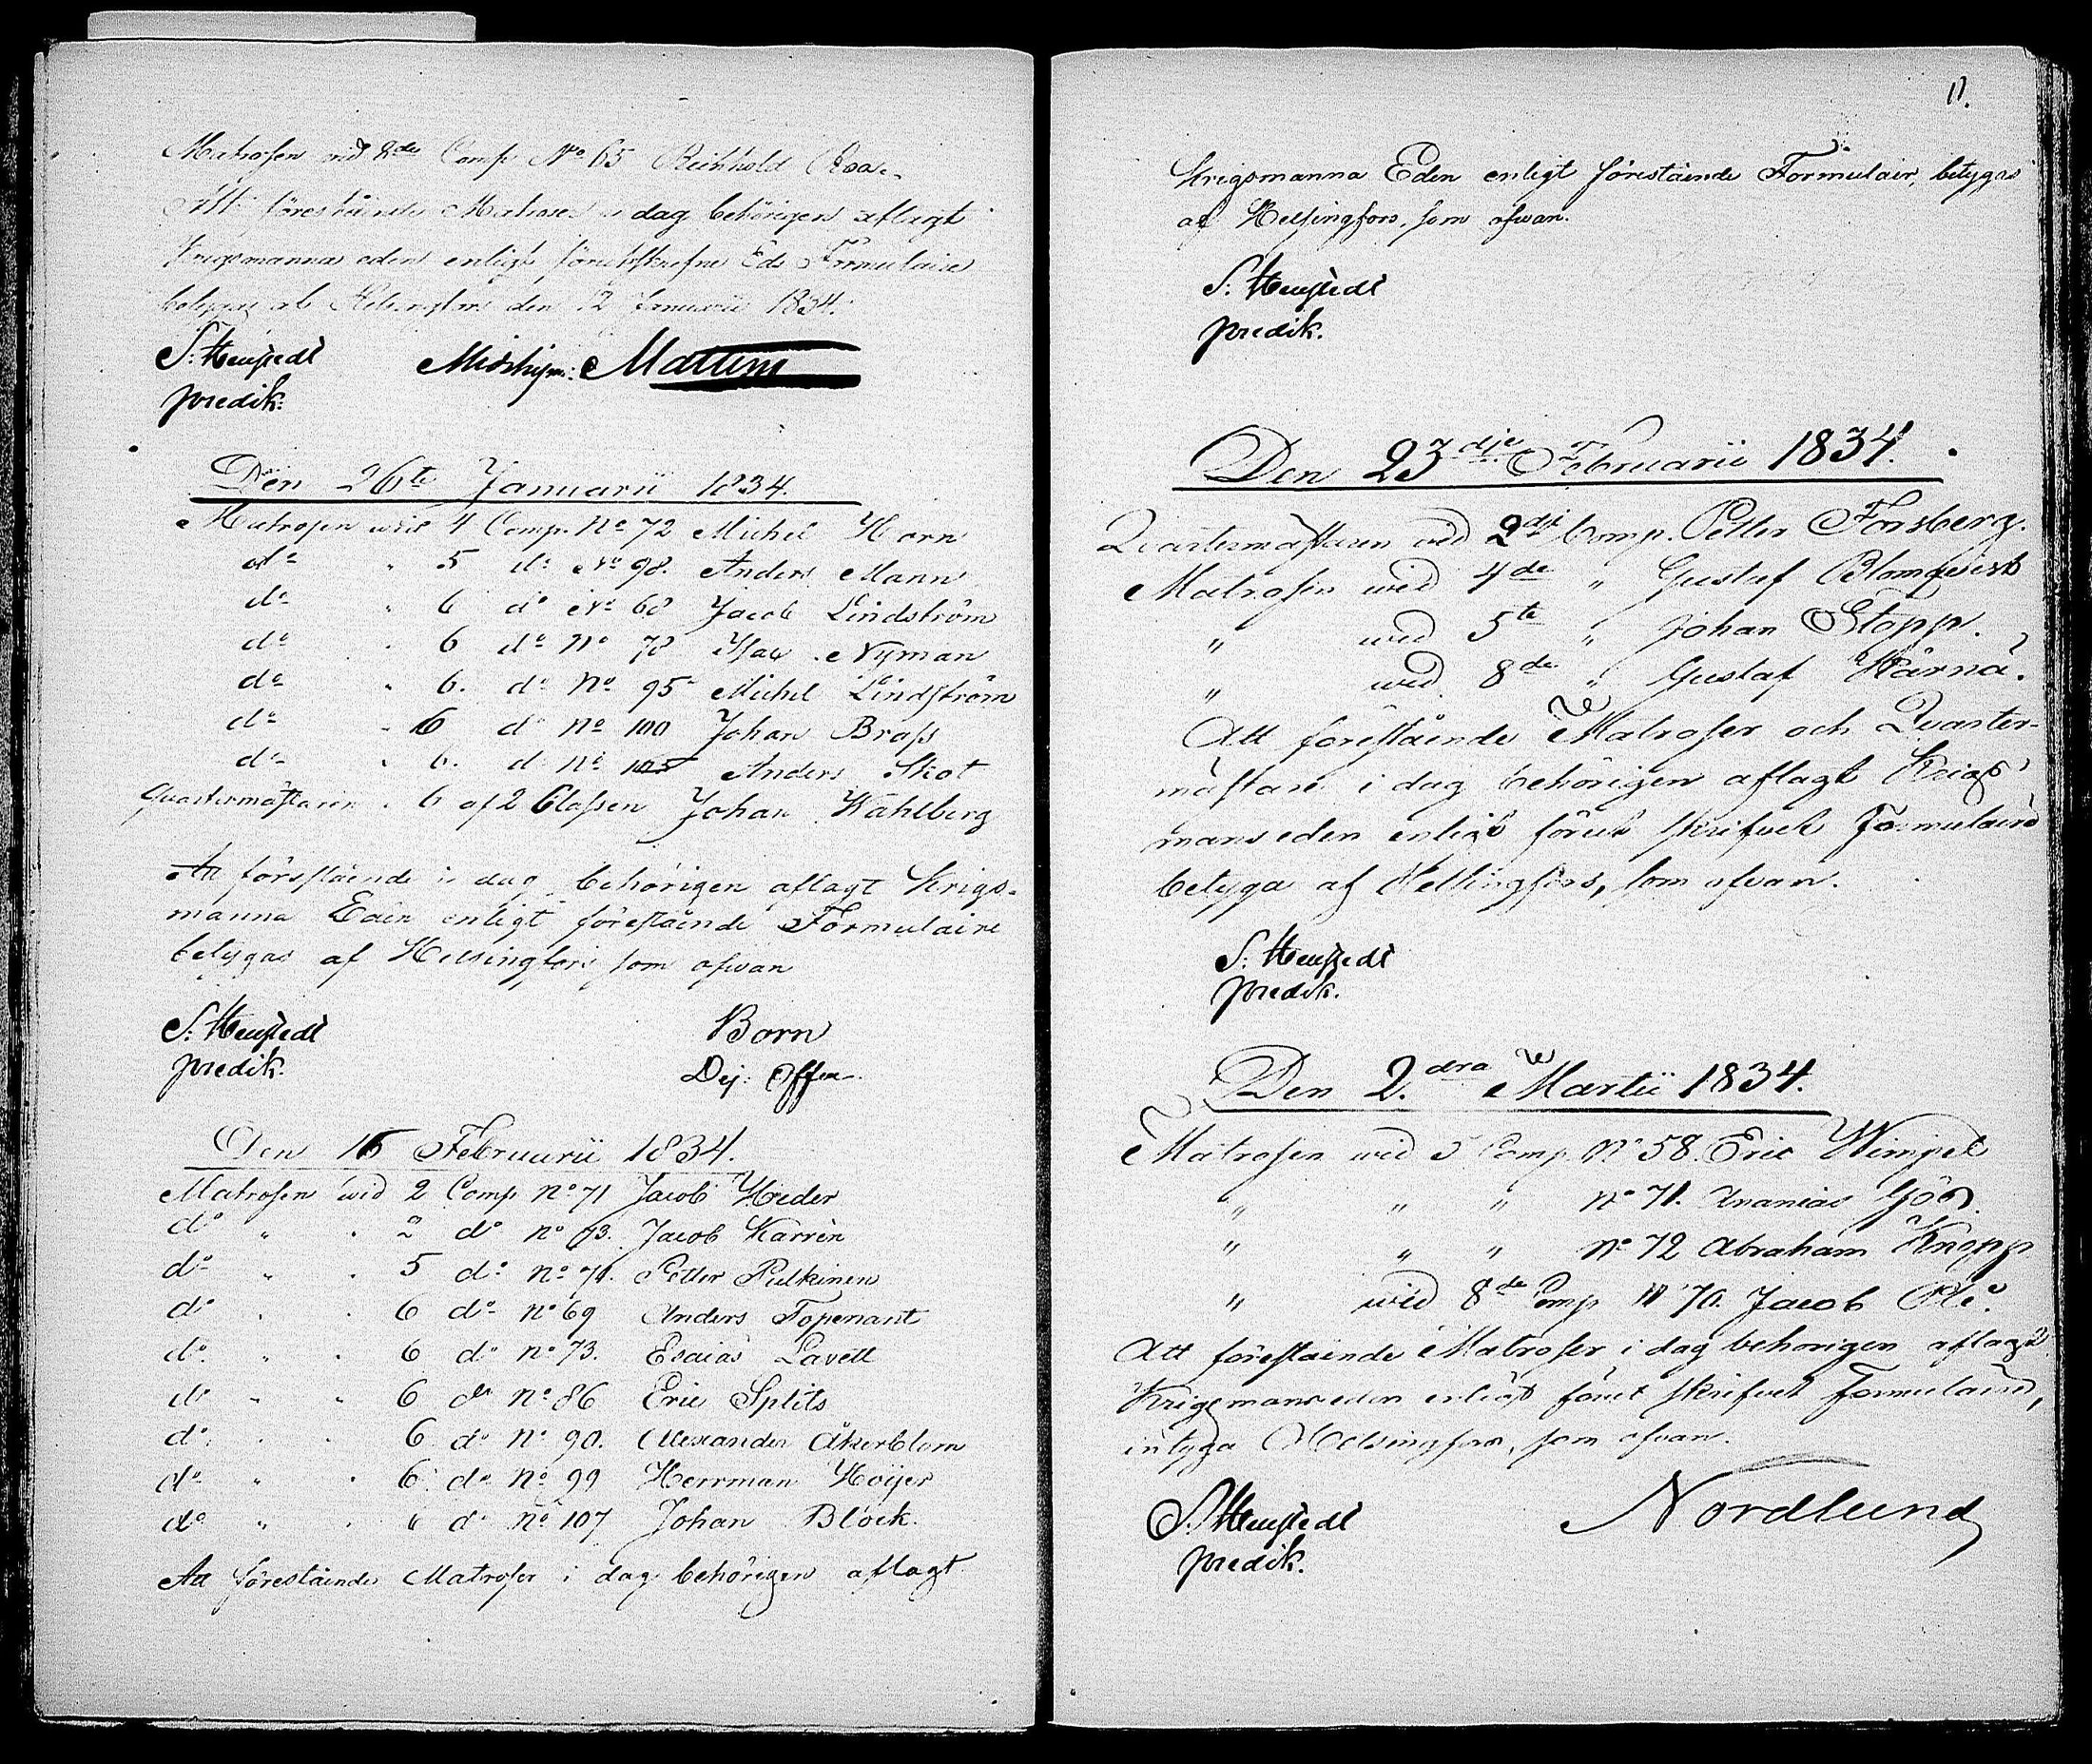 Matrosen vid 8de Comp No 65 Reinhold
Att förestående Matroser i dag behörigen aflagt
Krigsmanna eden enligt föreskrefne Eds Formulaire
betygas af Helsingfors den 12 Januarii 1834.
S: Hengstedt Midshipm: Matteus
predik:
Den 26te Januarii 1834.
Matrosen wid 4 Comp. No 72 Michel Horn
do " 5 do No 98. Anders Mann
do " 6 do No 68 Jacob Lindström
do " 6 do No 78 Isac Nyman
do " 6. do No 95 Michel Lindström
do " 6 do No 100 Johan Brass
do " 6. do No 105 Anders Skot
Quartermästaren " 6 af 2 Classen Johan Wahlberg
Att förestående i dag behörigen aflagt Krigs-
manna Eden enligt förestående Formulaire
betygas af Helsingfors som ofwan
S: Hengstedt Born
predik. Dej: Offen
Den 16 Februarii 1834.
Matrosen wid 2 Comp No 71 Jacob Heder
do " " 2 do No 73. Jacob Karrèn
do " " 5 do No 71. Petter Pulkinen
do " " 6 do No 69 Anders Topenant
do " " 6 do No 73. Esaias Lavett
do " " 6 do No 86 Eric Splits
do " " 6 do No 90. Alexander Åkerblom
do " " 6 do No 99 Herrman Höijer
do " " 6 do No 107 Johan Blöck.
Att förestående Matroser i dag behörigen aflagt
11.
Krigsmanna Eden enligt förestående Formulair, betygas
af Helsingfors, som ofwan.
S: Hengstedt
predik.
Den 23dje Februarii 1834.
Quartermästaren vid 2dj Comp. Petter Forsberg.
Matrosen wid 4de " Gustaf Blomqvist
" wid 5te " Johan Stopp.
" wid 8de " Gustaf Härnä.
Att förestående Matroser och Quarter-
mästare i dag behörigen aflagt Krigs
mans eden enligt föreskrifvet Formulaire
betyga af Helsingfors, som ofvan.
S: Hengstedt
predik.
Den 2.dra Martii 1834.
Matrosen wid 5 Comp No 58. Eric Wimpel
" " " No 71. Ananias Göö.
" " " No 72 Abraham Knopp
" wid 8de Comp No 70. Jacob
Att förestående Matroser i dag behörigen aflagt
Krigsmans eden enligt föreskrifvet Formulaire,
intyga Helsingfors, som ofvan.
S: Hengstedt Nordlund
predik.